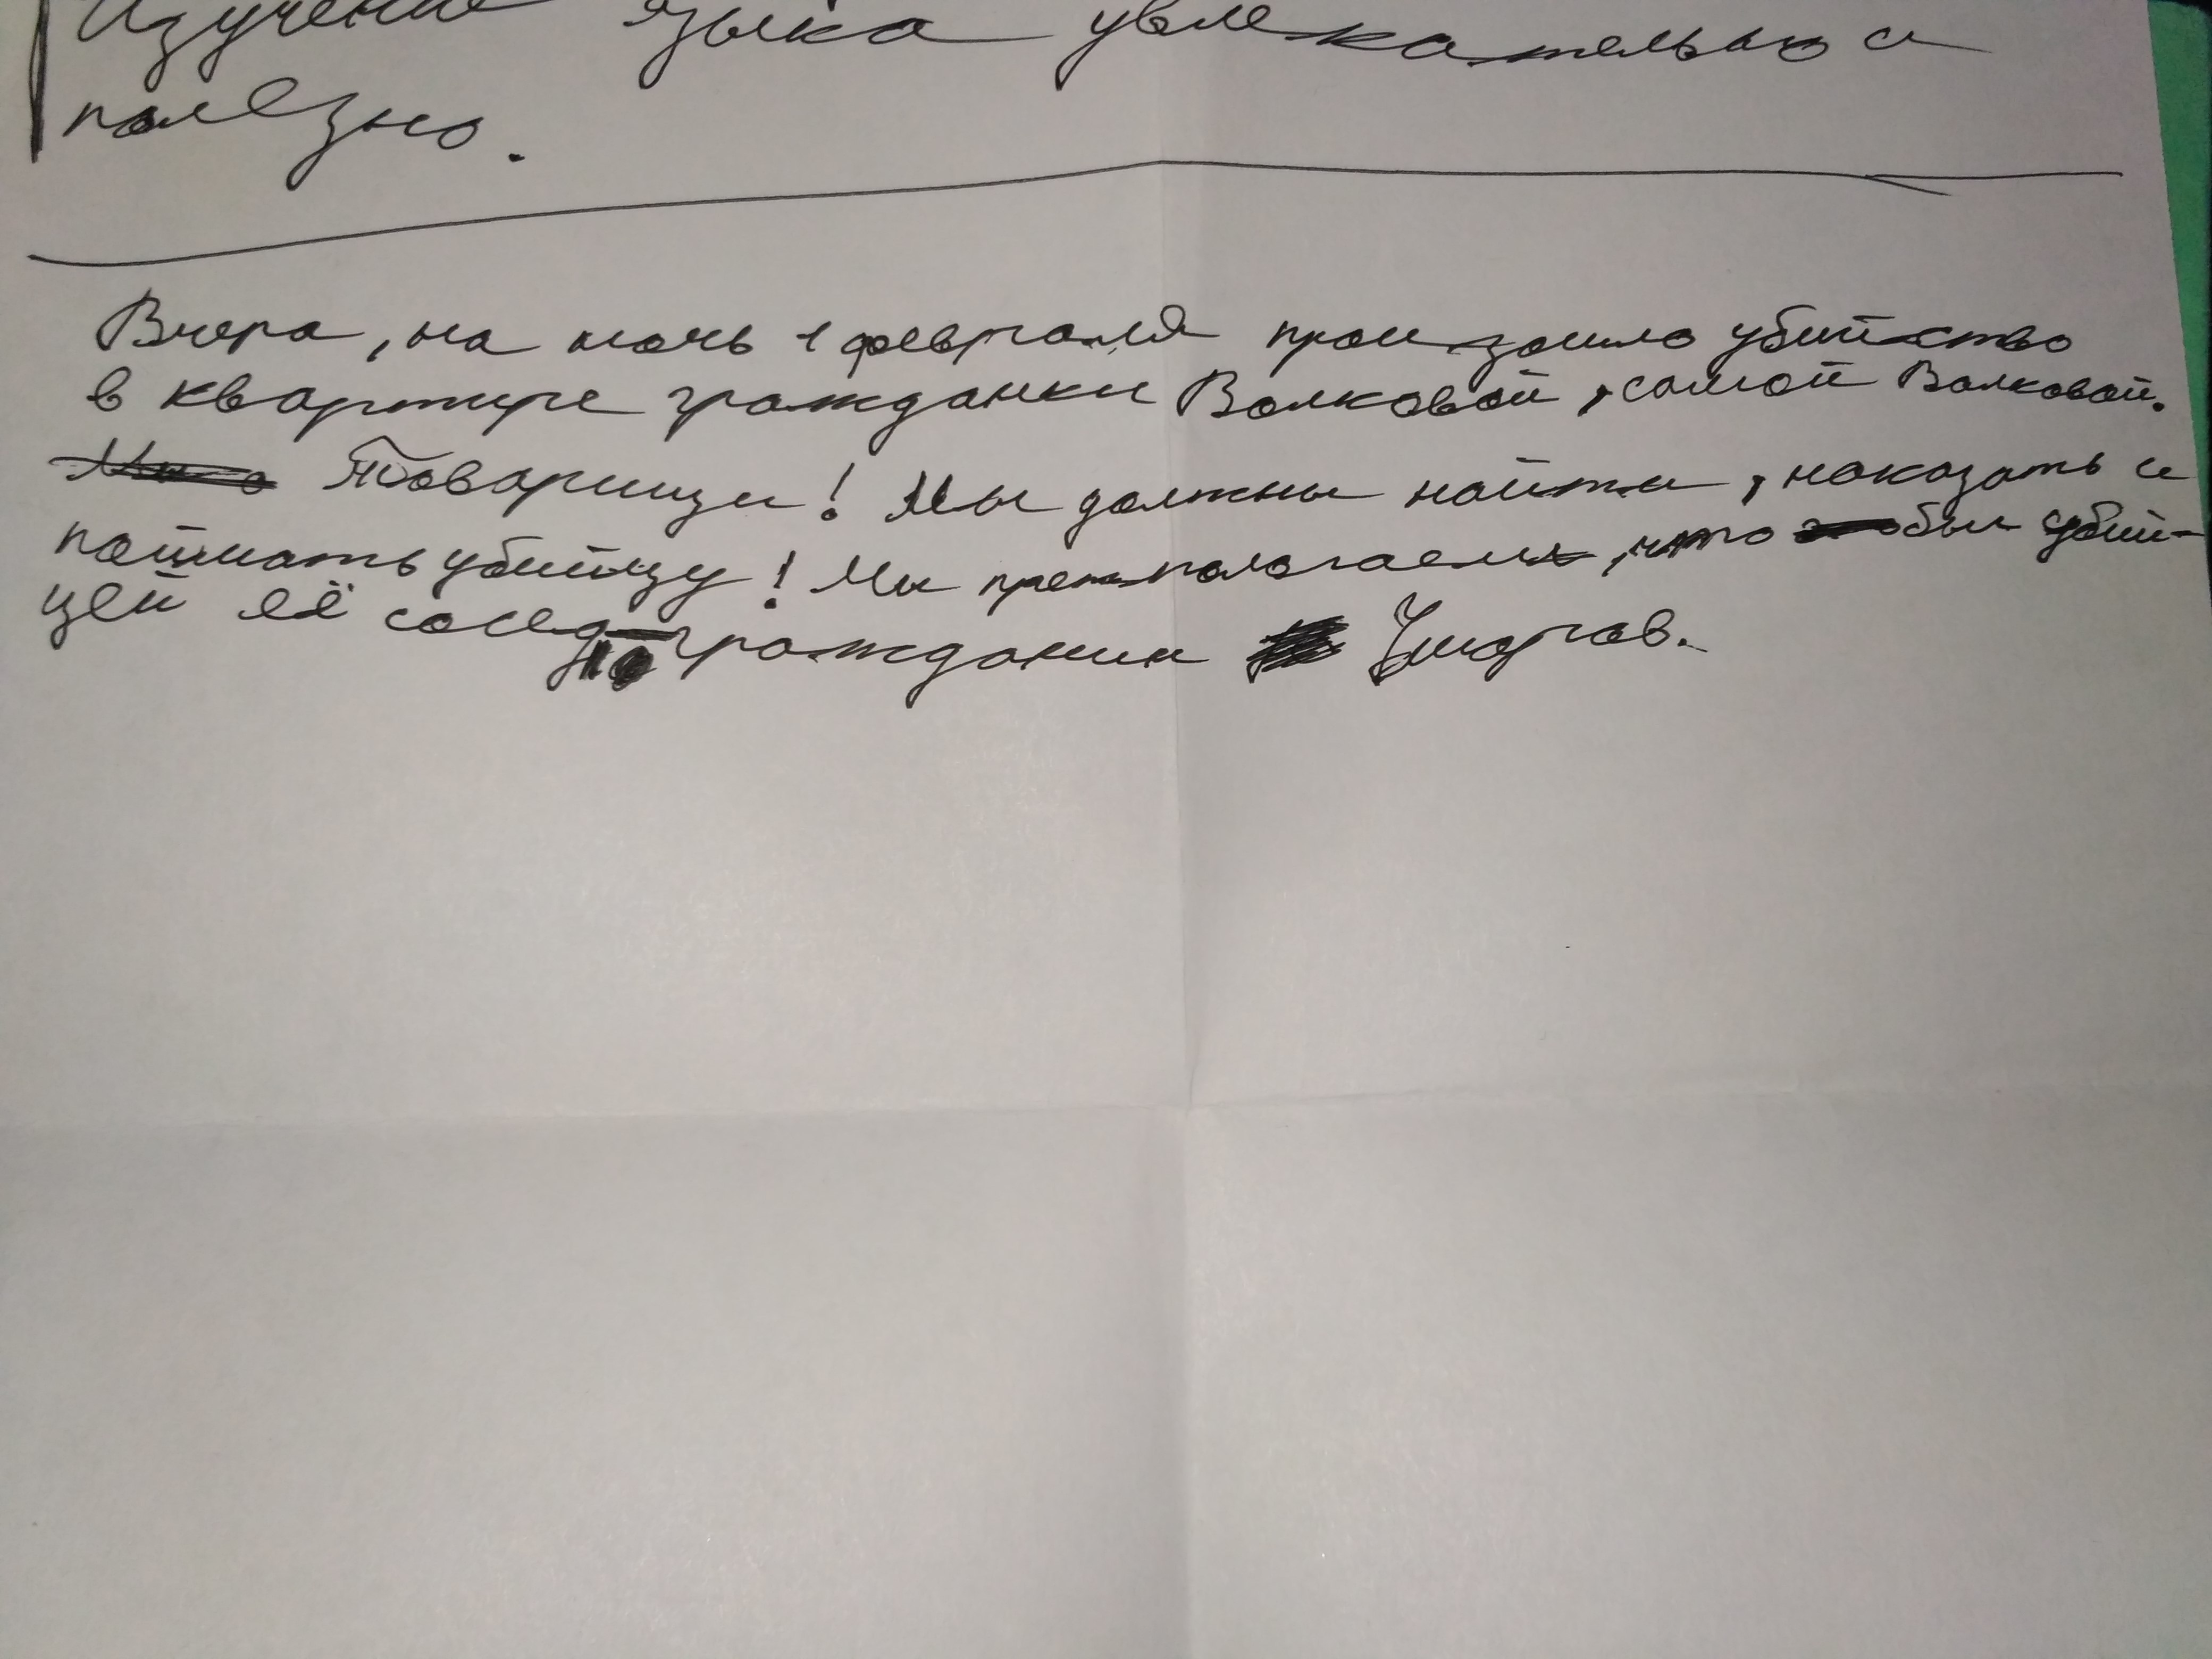 Изучение языка увлекательно и
полезно.
Вчера, на ночь 1 февраля произошло убийство
в квартире гражданки Волковой, самой Волковой.
Товарищи! Мы должны найти, наказать и
поймать убийцу! Мы предполагаем, что был убий-
цей её сосед гражданин